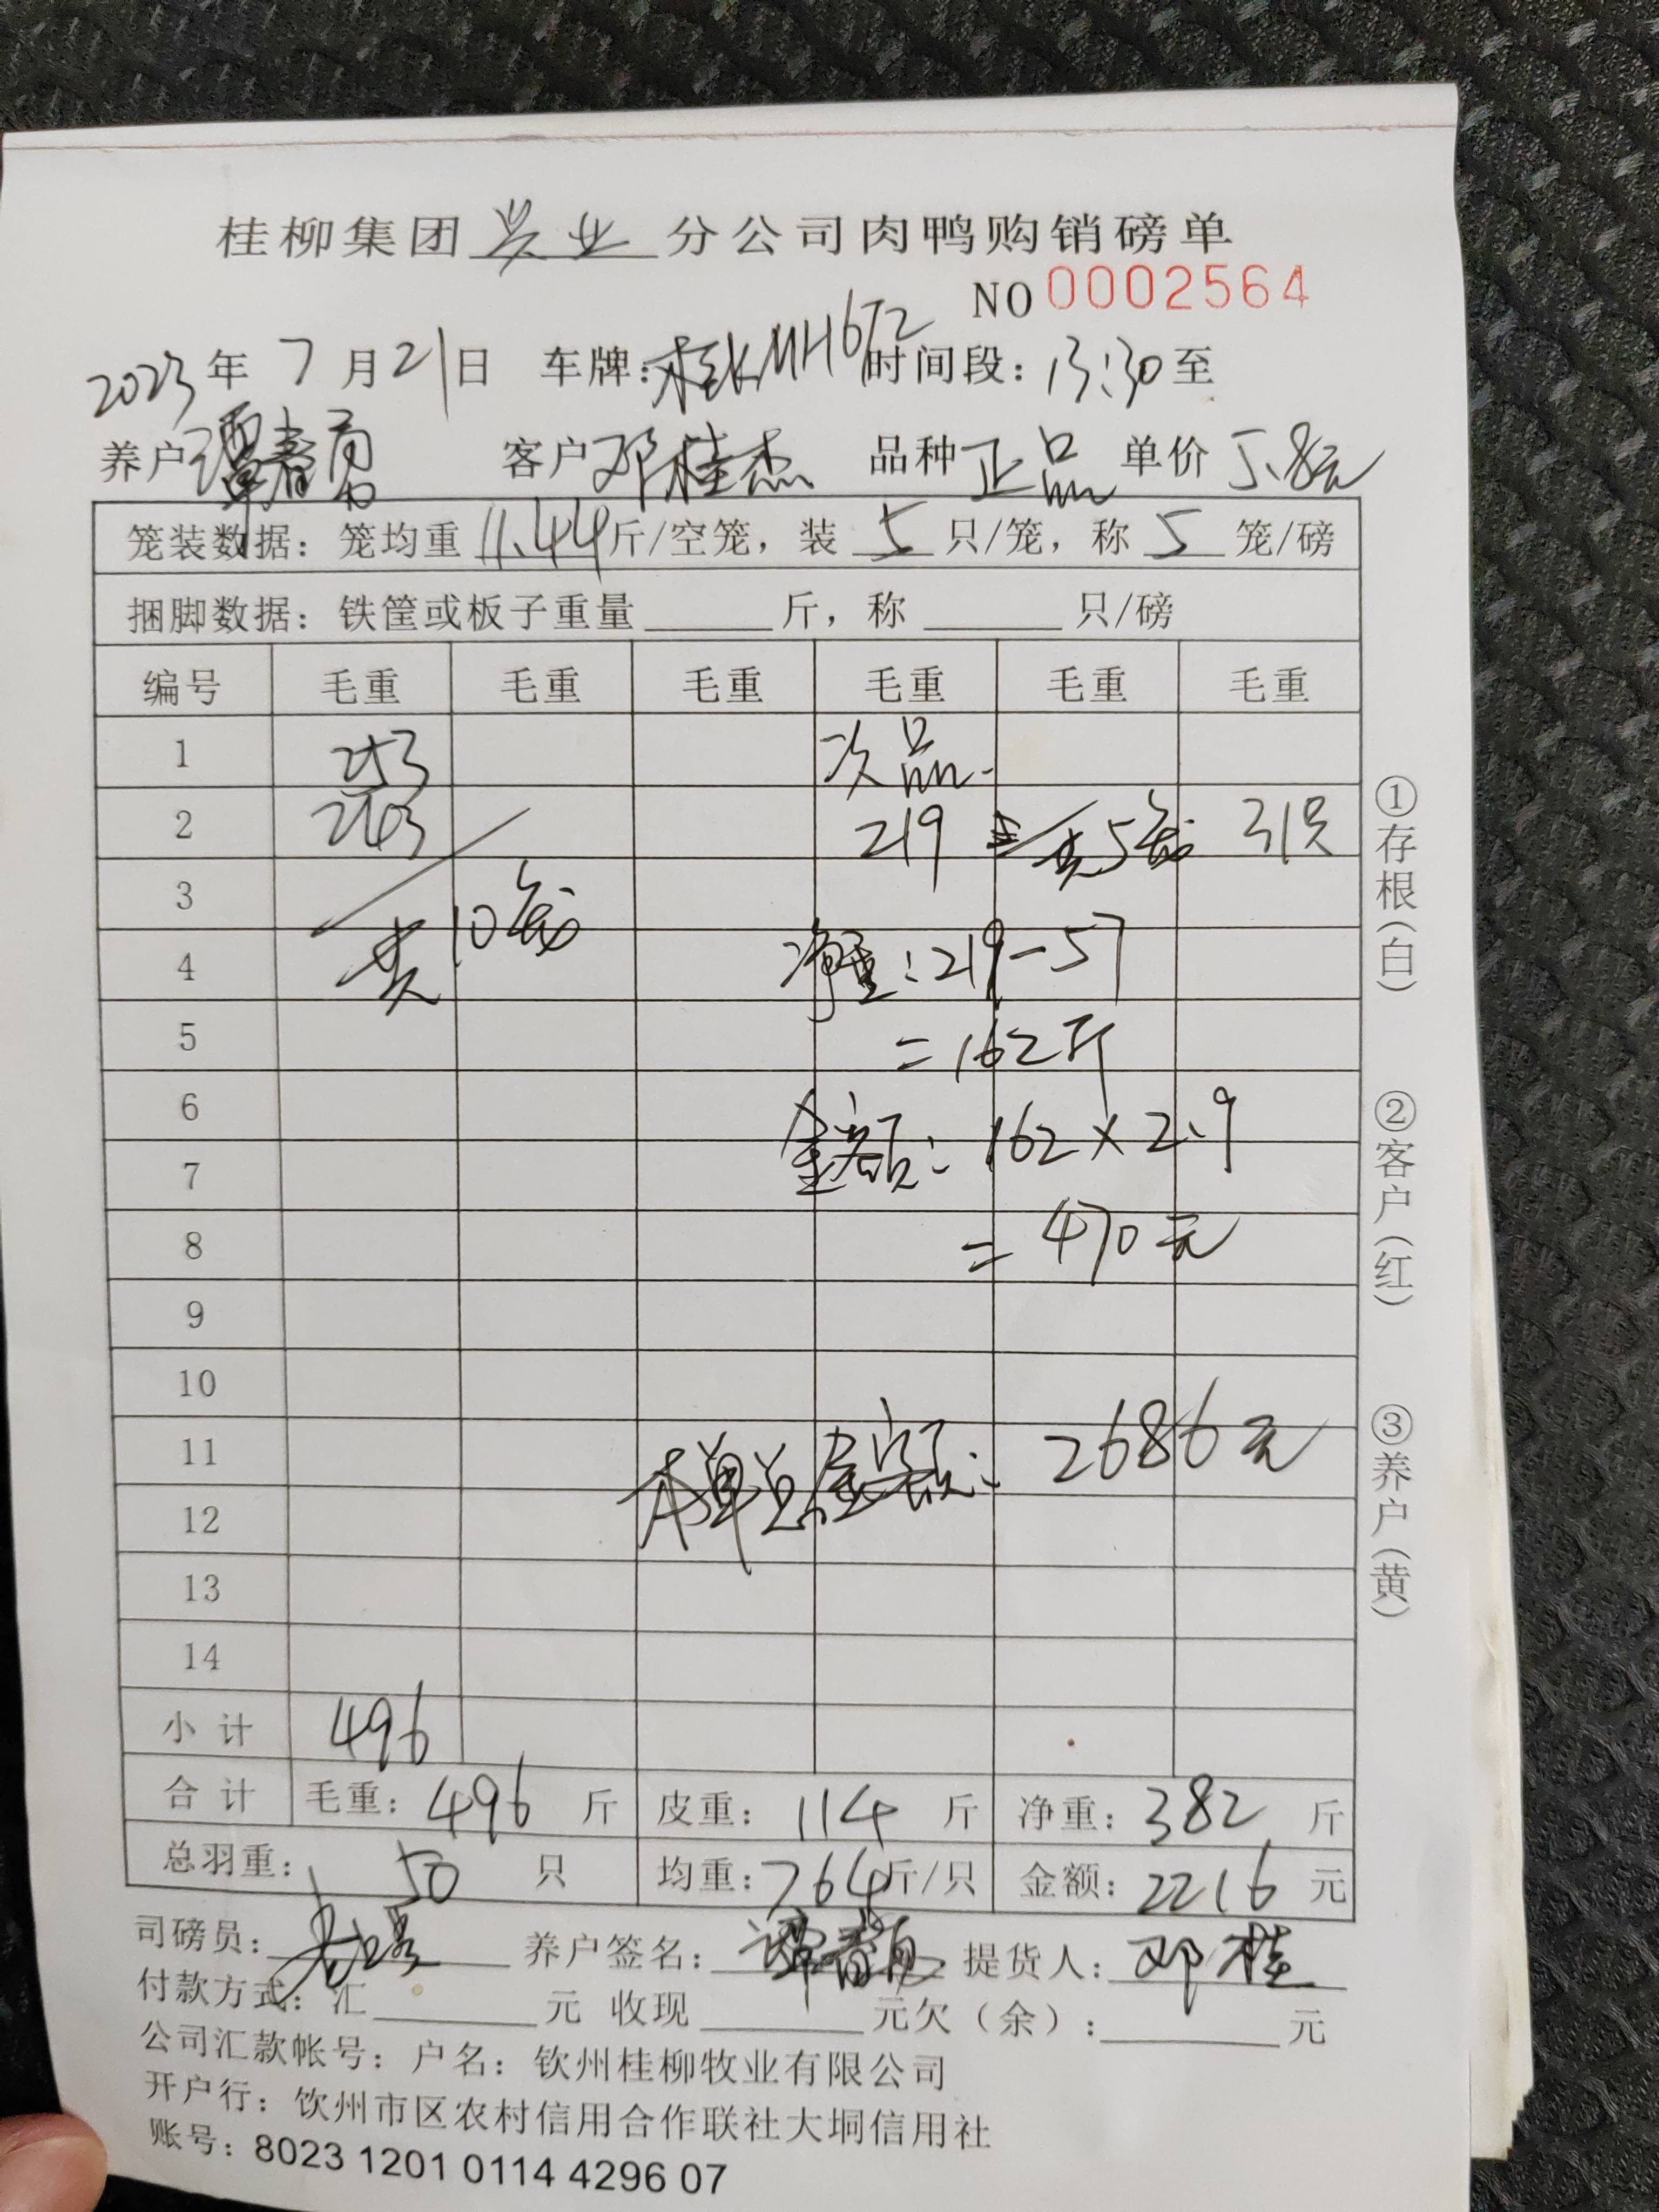 桂柳集团兴业分公司肉鸭购销磅单
NO 0002564
2023年7月21日 车牌:桂KMH672 时间段:13:30至
养户 谭春勇 客户 邓桂杰 品种 正品 单价 5.8元
笼装数据:笼均重 11.44斤/空笼,装 5 只/笼,称 5 笼/磅
捆脚数据:铁筐或板子重量 斤,称 只/磅
编号 毛重 毛重 毛重 毛重 毛重 毛重
1 253 次品
2 243 219 共5笼 31只
3
共10笼
4 净重:219-57
5 =162斤
6 金额:162×2.9
7
8 =470元
9
10
11 本单总金额:2686元
12
13
14
小计 496
合计 毛重:496斤 皮重:114斤 净重:382斤
总羽重:50只 均重:7.64斤/只 金额:2216元
司磅员: 养户签名: 提货人:邓桂
付款方式:汇 元 收现 元欠(余): 元
公司汇款帐号:户名:钦州桂柳牧业有限公司
开户行:钦州市区农村信用合作联社大垌信用社
账号:8023 1201 0114 4296 07
①存根(白)
②客户(红)
③养户(黄)